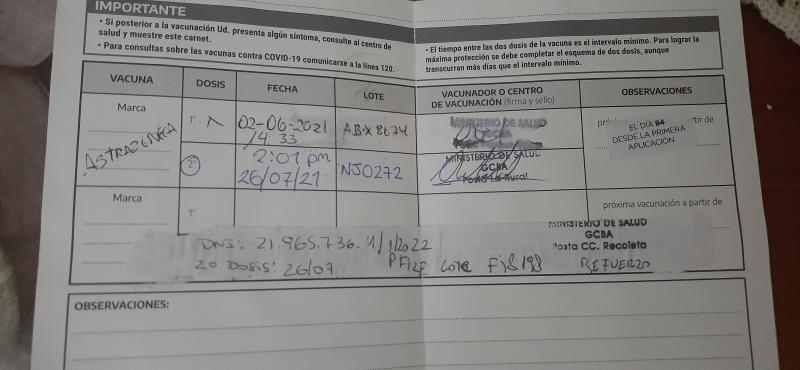 IMPORTANTE
• Si posterior a la vacunación Ud. presenta algún síntoma, consulte al centro de
salud y muestre este carnet.
• Para consultas sobre las vacunas contra COVID-19 comunicarse a la línea 120.
• El tiempo entre las dos dosis de la vacuna es el intervalo mínimo. Para lograr la
máxima protección se debe completar el esquema de dos dosis, aunque
transcurran más días que el intervalo mínimo.
VACUNA DOSIS FECHA LOTE VACUNADOR O CENTRO DE VACUNACIÓN (firma y sello) OBSERVACIONES
Marca
ASTRAZENECA
1º
02-06-2021
14.33
ABX 8674
MINISTERIO DE SALUD
GCBA
EL DÍA 84
DESDE LA PRIMERA
APLICACION
2º
2:01 pm
26/07/21
NJ0272
MINISTERIO DE SALUD
GCBA
Posta La Rural
Marca
1º
próxima vacunación a partir de
DNI: 21.965.736. 1/1/2022
2º DOSIS: 26/07. PFIZE Lote
REFUERZO
MINISTERIO DE SALUD
GCBA
Posta CC. Recoleta
OBSERVACIONES: